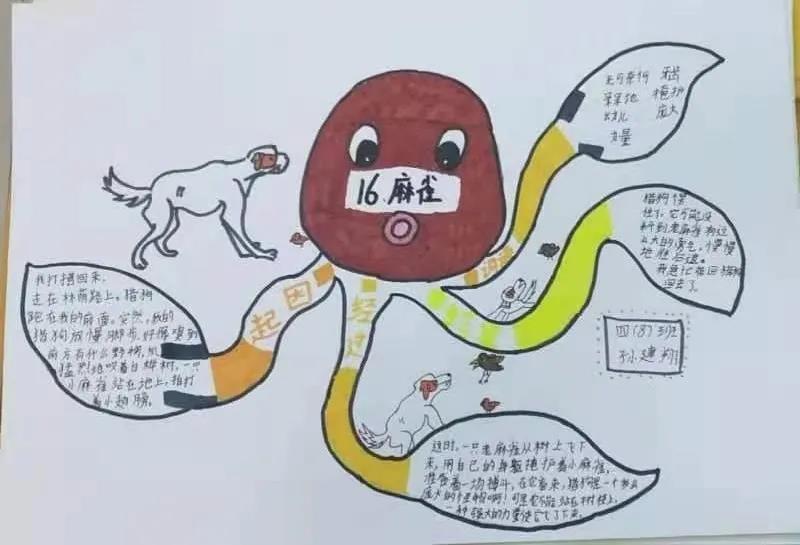 16.麻雀
起因
我打猎回来,
走在林荫路上。猎狗
跑在我的前面。突然,我的
猎狗放慢脚步,好像嗅到
前方有什么野物。风
猛烈地吹着白桦树,一只
小麻雀站在地上,拍打
着小翅膀。
经过
这时,一只老麻雀从树上飞下
来,用自己的身躯掩护着小麻雀,
准备着一场搏斗。在它看来,猎狗是一个多么
庞大的怪物啊!可是它不能站在树枝上,
一种强大的力量使它飞了下来。
猎狗愣
住了,它可能没
料到老麻雀有这
么大的勇气,慢慢
地向后退。
我急忙唤回猎狗
回去了。
词语
无可奈何
呆呆地 掩护
幼儿 庞大
力量
四(8)班
孙建翔